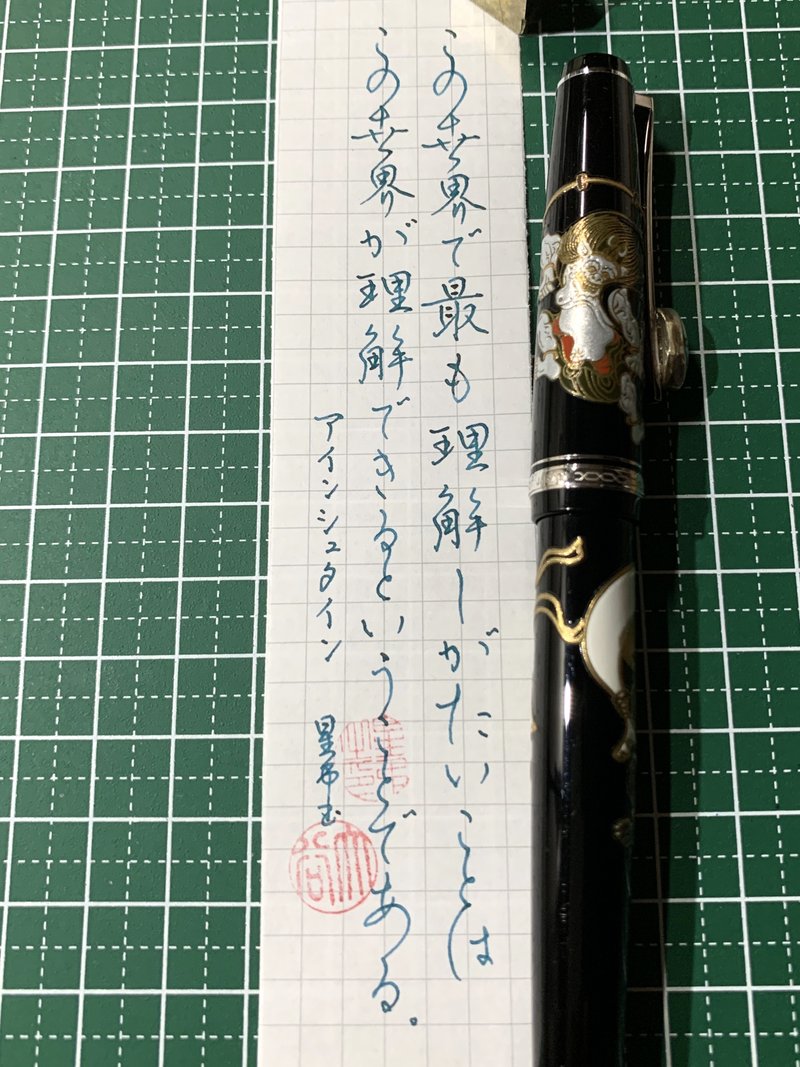 この世界で最も理解しがたいことは
この世界が理解できるということである。
アインシュタイン